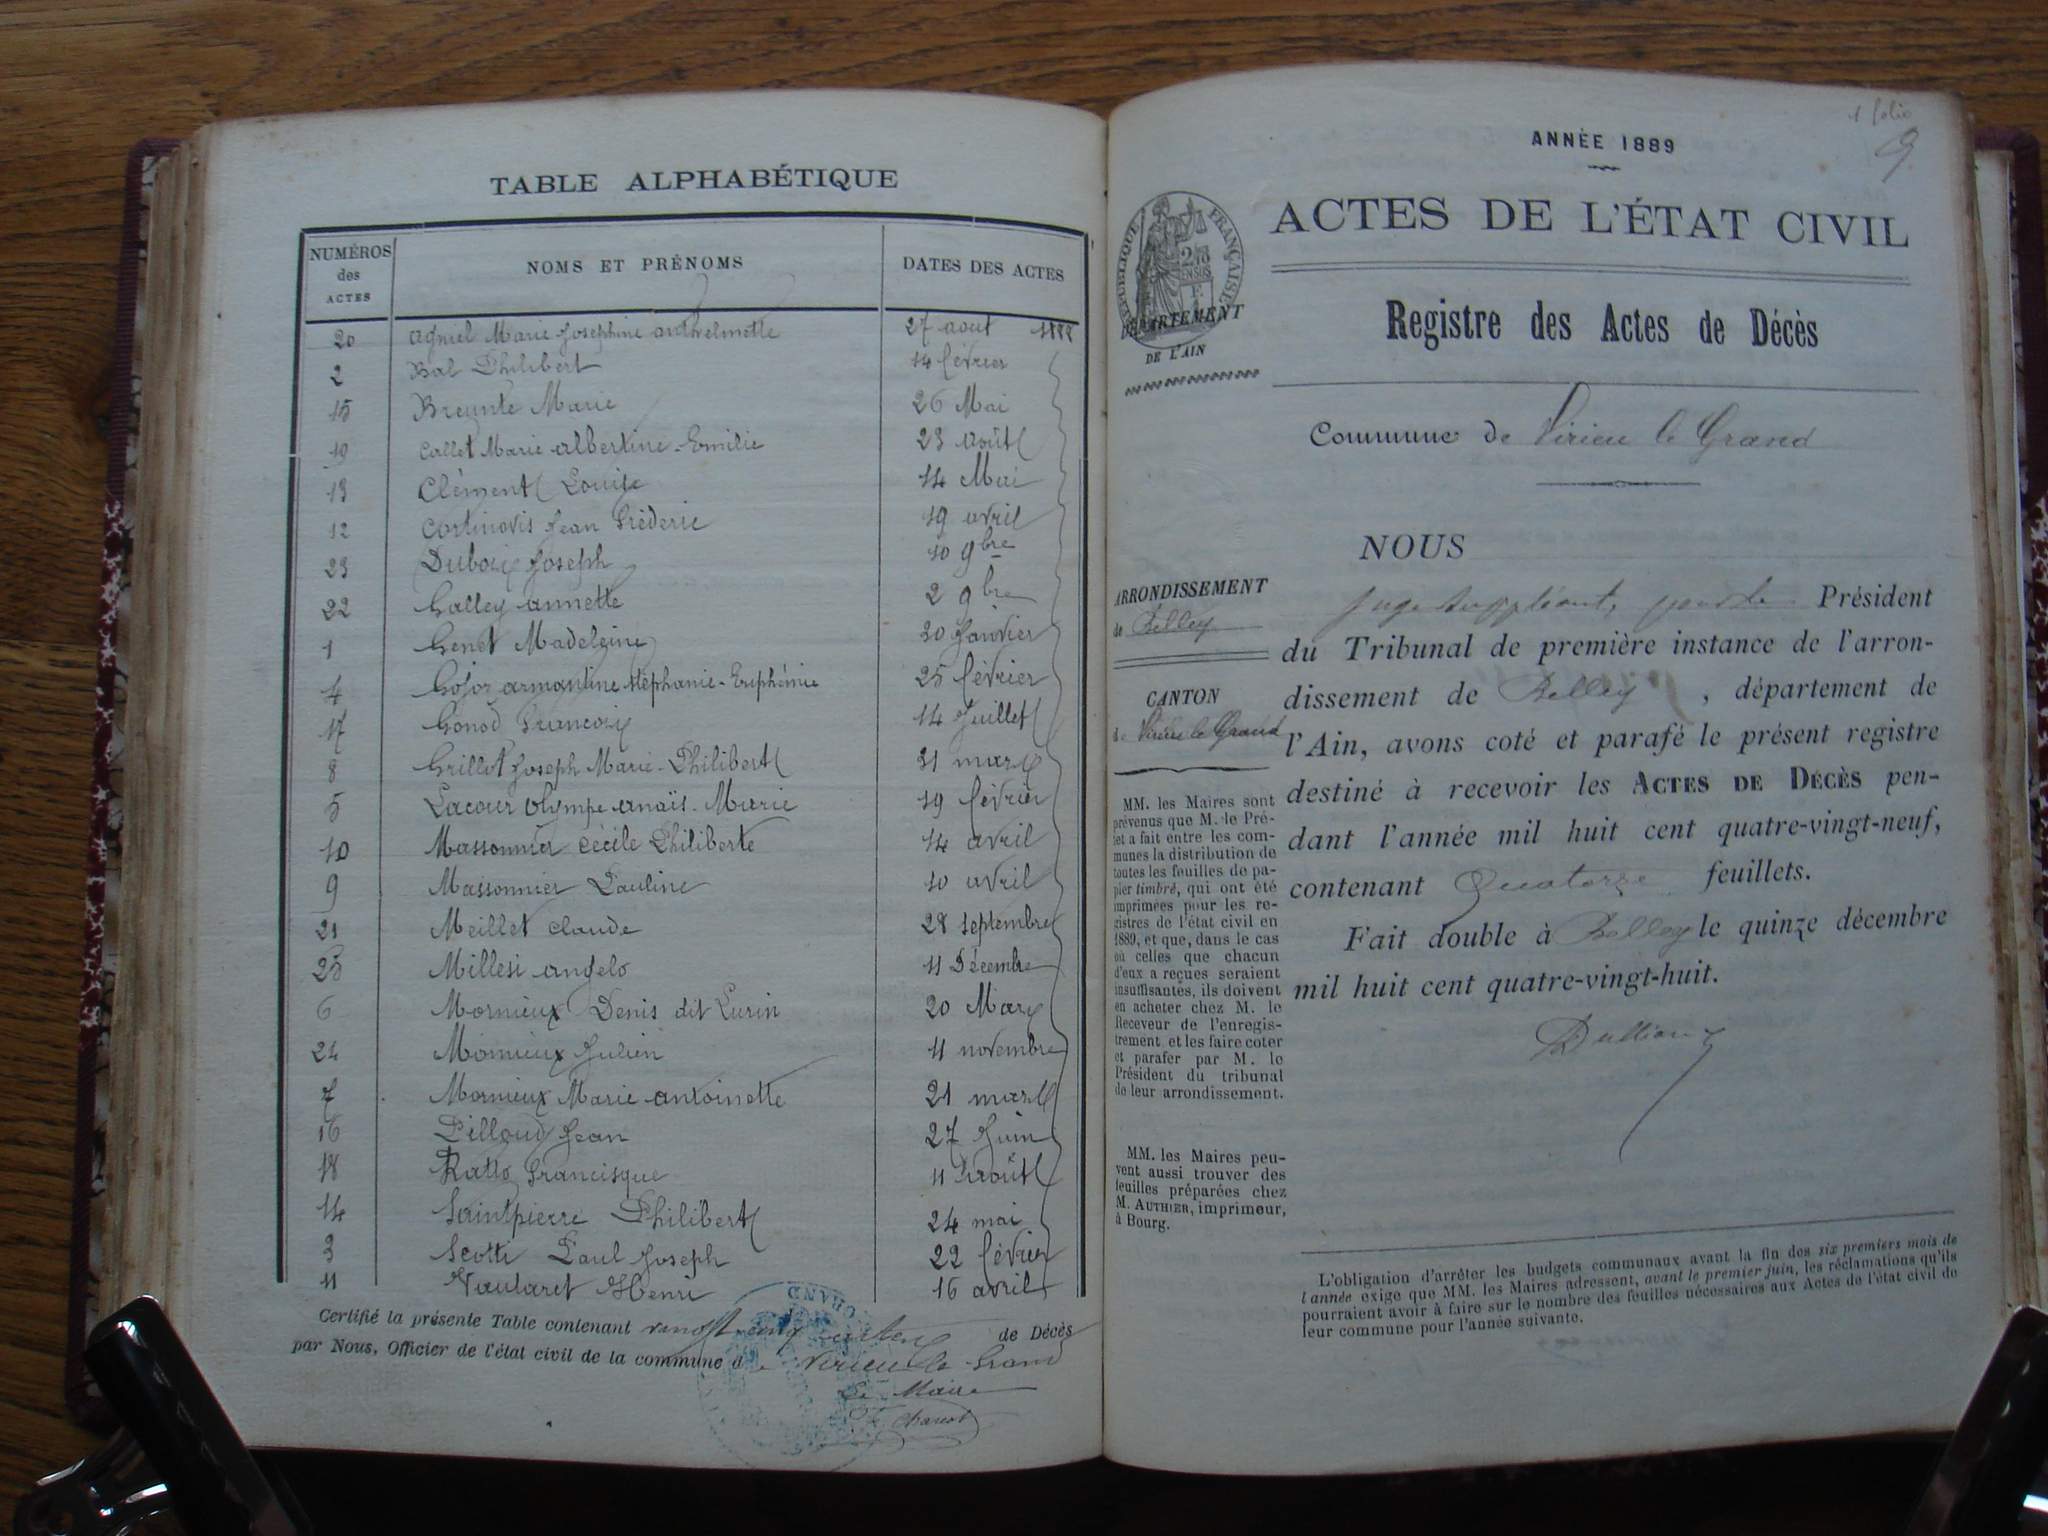 TABLE ALPHABÉTIQUE
NUMÉROS des ACTES NOMS ET PRÉNOMS DATES DES ACTES
20 Agniel Marie Josephine anthelmette 27 aout 1888
2 Bal Philibert 14 février
15 Breunte Marie 26 Mai
19 Callet Marie albertine-Emilie 23 août
13 Clément Louise 14 Mai
12 Cortinovis Jean Fréderic 19 avril
23 Dubois Joseph 10 9bre
22 Galley annette 2 9bre
1 Genet Madeleine 20 Janvier
4 Gojoz armantine stéphanie-Euphémie 25 février
17 Gonod François 14 Juillet
8 Grillot Joseph Marie-Philibert 31 mars
5 Lacour Olympe anaïs-Marie 19 février
10 Massonnier Cécile Philiberte 14 avril
9 Massonnier Pauline 10 avril
21 Meillet Claude 28 septembre
25 Millesi angelo 11 Décembre
6 Mornieux Denis dit Lurin 20 Mars
24 Mornieux Julien 11 novembre
7 Mornieux Marie antoinette 21 mars
16 Pilloud Jean 27 Juin
18 Ratto Francisque 11 août
14 Saintpierre Philibert 24 mai
3 Scotti Paul Joseph 22 février
11 Vaularet Henri 16 avril
Certifié la présente Table contenant vingt-cinq actes de Décès
par Nous, Officier de l'état civil de la commune de Virieu le Grand
Le Maire
Charcot
1 folio
9
ANNÉE 1889
ACTES DE L'ÉTAT CIVIL
RÉPUBLIQUE FRANÇAISE
DÉPARTEMENT
DE L'AIN
Registre des Actes de Décès
Commune de Virieu le Grand
NOUS
Juge suppléant, pour le Président
du Tribunal de première instance de l'arron-
dissement de Belley, département de
l'Ain, avons coté et parafé le présent registre
destiné à recevoir les ACTES DE DÉCÈS pen-
dant l'année mil huit cent quatre-vingt-neuf,
contenant Quatorze feuillets.
Fait double à Belley le quinze décembre
mil huit cent quatre-vingt-huit.
ARRONDISSEMENT
de Belley
CANTON
de Virieu le Grand
MM. les Maires sont
prévenus que M. le Pré-
fet a fait entre les com-
munes la distribution de
toutes les feuilles de pa-
pier timbré, qui ont été
imprimées pour les re-
gistres de l'état civil en
1889, et que, dans le cas
où celles que chacun
d'eux a reçues seraient
insuffisantes, ils doivent
en acheter chez M. le
Receveur de l'enregis-
trement et les faire coter
et parafer par M. le
Président du tribunal
de leur arrondissement.
MM. les Maires peu-
vent aussi trouver des
feuilles préparées chez
M. AUTHIER, imprimeur,
à Bourg.
L'obligation d'arrêter les budgets communaux avant la fin des six premiers mois de
l'année exige que MM. les Maires adressent, avant le premier juin, les réclamations qu'ils
pourraient avoir à faire sur le nombre des feuilles nécessaires aux Actes de l'état civil de
leur commune pour l'année suivante.